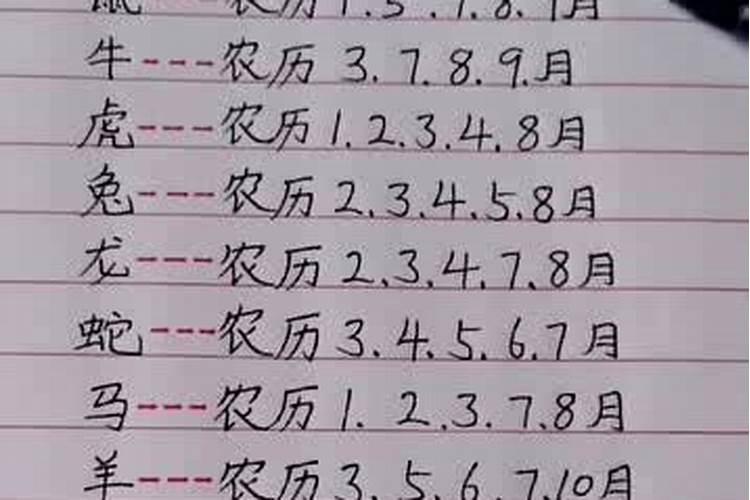 鼠---农历1.5.7.8.9月
牛---农历 3.7.8.9.月
虎---农历1.2.3.4.8月
兔---农历2.3.4.5.8月
龙---农历2.3.4.7.8月
蛇---农历3.4.5.6.7月
马---农历1.2.3.7.8月
羊---农历3.5.6.7.10月